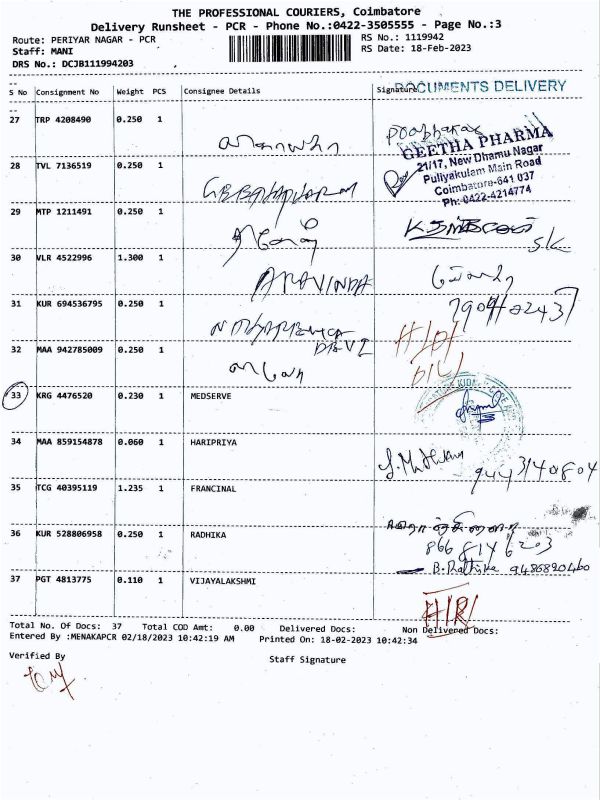 THE PROFESSIONAL COURIERS, Coimbatore
Delivery Runsheet - PCR - Phone No.:0422-3505555 - Page No.:3
Route: PERIYAR NAGAR - PCR
RS No.: 1119942
Staff: MANI
RS Date: 18-Feb-2023
DRS No.: DCJB111994203
S No Consignment No Weight PCS Consignee Details Signature
DOCUMENTS DELIVERY
27 TRP 4208490 0.250 1
GEETHA PHARMA
21/17, New Dhamu Nagar
Puliyakulam Main Road
Coimbatore-641 037
Ph: 0422-4214774
28 TVL 7136519 0.250 1
29 MTP 1211491 0.250 1
30 VLR 4522996 1.300 1
ARAVINDA
31 KUR 694536795 0.250 1
32 MAA 942785009 0.250 1
33 KRG 4476520 0.230 1 MEDSERVE
34 MAA 859154878 0.060 1 HARIPRIYA
9443140804
35 TCG 40395119 1.235 1 FRANCINAL
36 KUR 528806958 0.250 1 RADHIKA
866 814 6203
9486892460
37 PGT 4813775 0.110 1 VIJAYALAKSHMI
Total No. Of Docs: 37 Total COD Amt: 0.00 Delivered Docs: Non Delivered Docs:
Entered By :MENAKAPCR 02/18/2023 10:42:19 AM Printed On: 18-02-2023 10:42:34
Verified By
Staff Signature